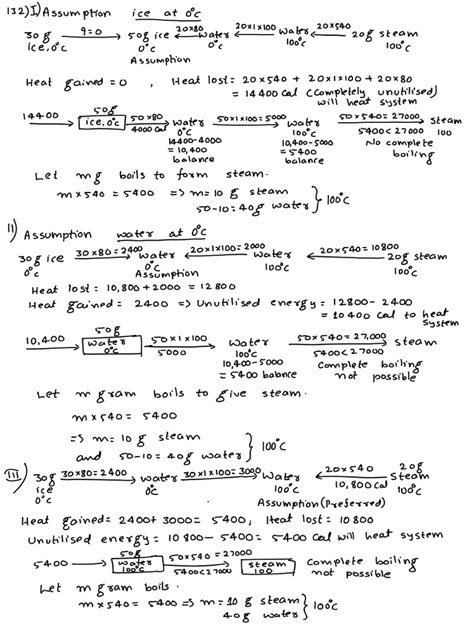 132) I) Assumption ice at 0°c
30g ice,0°c ←(q=0) 50g ice 0°c Assumption ←(20x80) water 0°c ←(20x1x100) water 100°c ←(20x540) 20g steam 100°c
Heat gained = 0 , Heat lost: 20x540 + 20x1x100 + 20x80
= 14400 cal (completely unutilised)
will heat system
14400 → 50g [ice,0°c] →(50x80 4000 cal) water 0°c →(50x1x100=5000) water 100°c →(50x540=27000 5400<27000) Steam 100
14400-4000 = 10,400 balance
10,400-5000 = 5400 balance
No complete boiling
Let mg boils to form steam.
mx540 = 5400 => m= 10 g steam
50-10 = 40g water } 100°c
II) Assumption water at 0°c
30g ice 0°c →(30x80=2400) water 0°c Assumption ←(20x1x100=2000) water 100°c ←(20x540=10800) 20g steam 100°c
Heat lost = 10,800+2000 = 12800
Heat gained = 2400 => Unutilised energy = 12800-2400
= 10400 cal to heat
system
10,400 → 50g [water 0°c] →(50x1x100 5000) water 100°c →(50x540=27,000 5400<27000) steam
10,400-5000 = 5400 balance
Complete boiling not possible
Let m gram boils to give steam.
mx540 = 5400
=> m= 10 g steam
and 50-10 = 40g water } 100°c
III) 30g ice 0°c →(30x80=2400) water 0°c →(30x1x100=3000) water 100°c ←(20x540 10,800 cal) 20g Steam 100°c
Assumption (Preferred)
Heat gained = 2400+3000 = 5400, Heat lost = 10800
Unutilised energy = 10800-5400 = 5400 cal will heat system
5400 → 50g [water 100°c] →(50x540=27000 5400<27000) [steam 100] Complete boiling not possible
Let m gram boils.
mx540 = 5400 => m= 10 g steam
40g water } 100°c